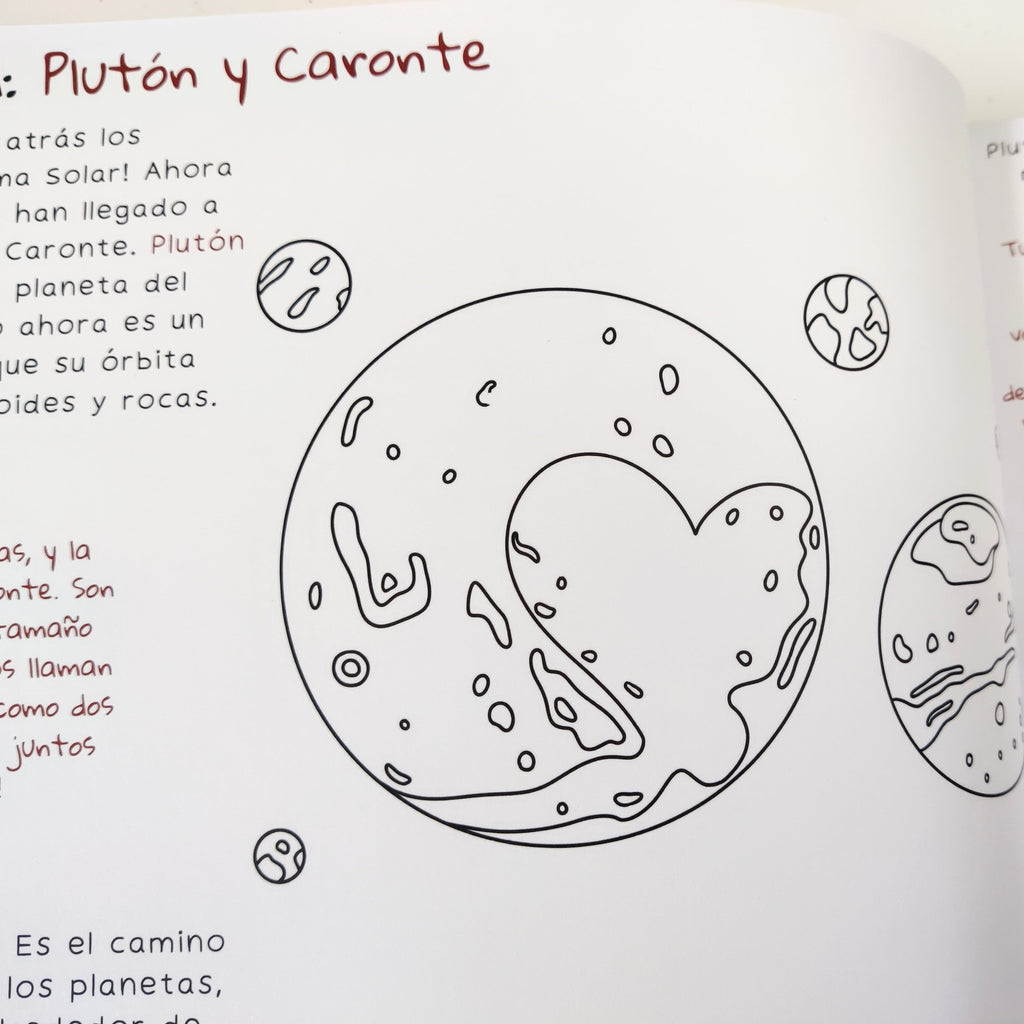 : Plutón y Caronte
atrás los
Solar! Ahora
han llegado a
Caronte. Plutón
planeta del
ahora es un
que su órbita
y rocas.
y la
Son
tamaño
llaman
como dos
juntos
Es el camino
los planetas,
de